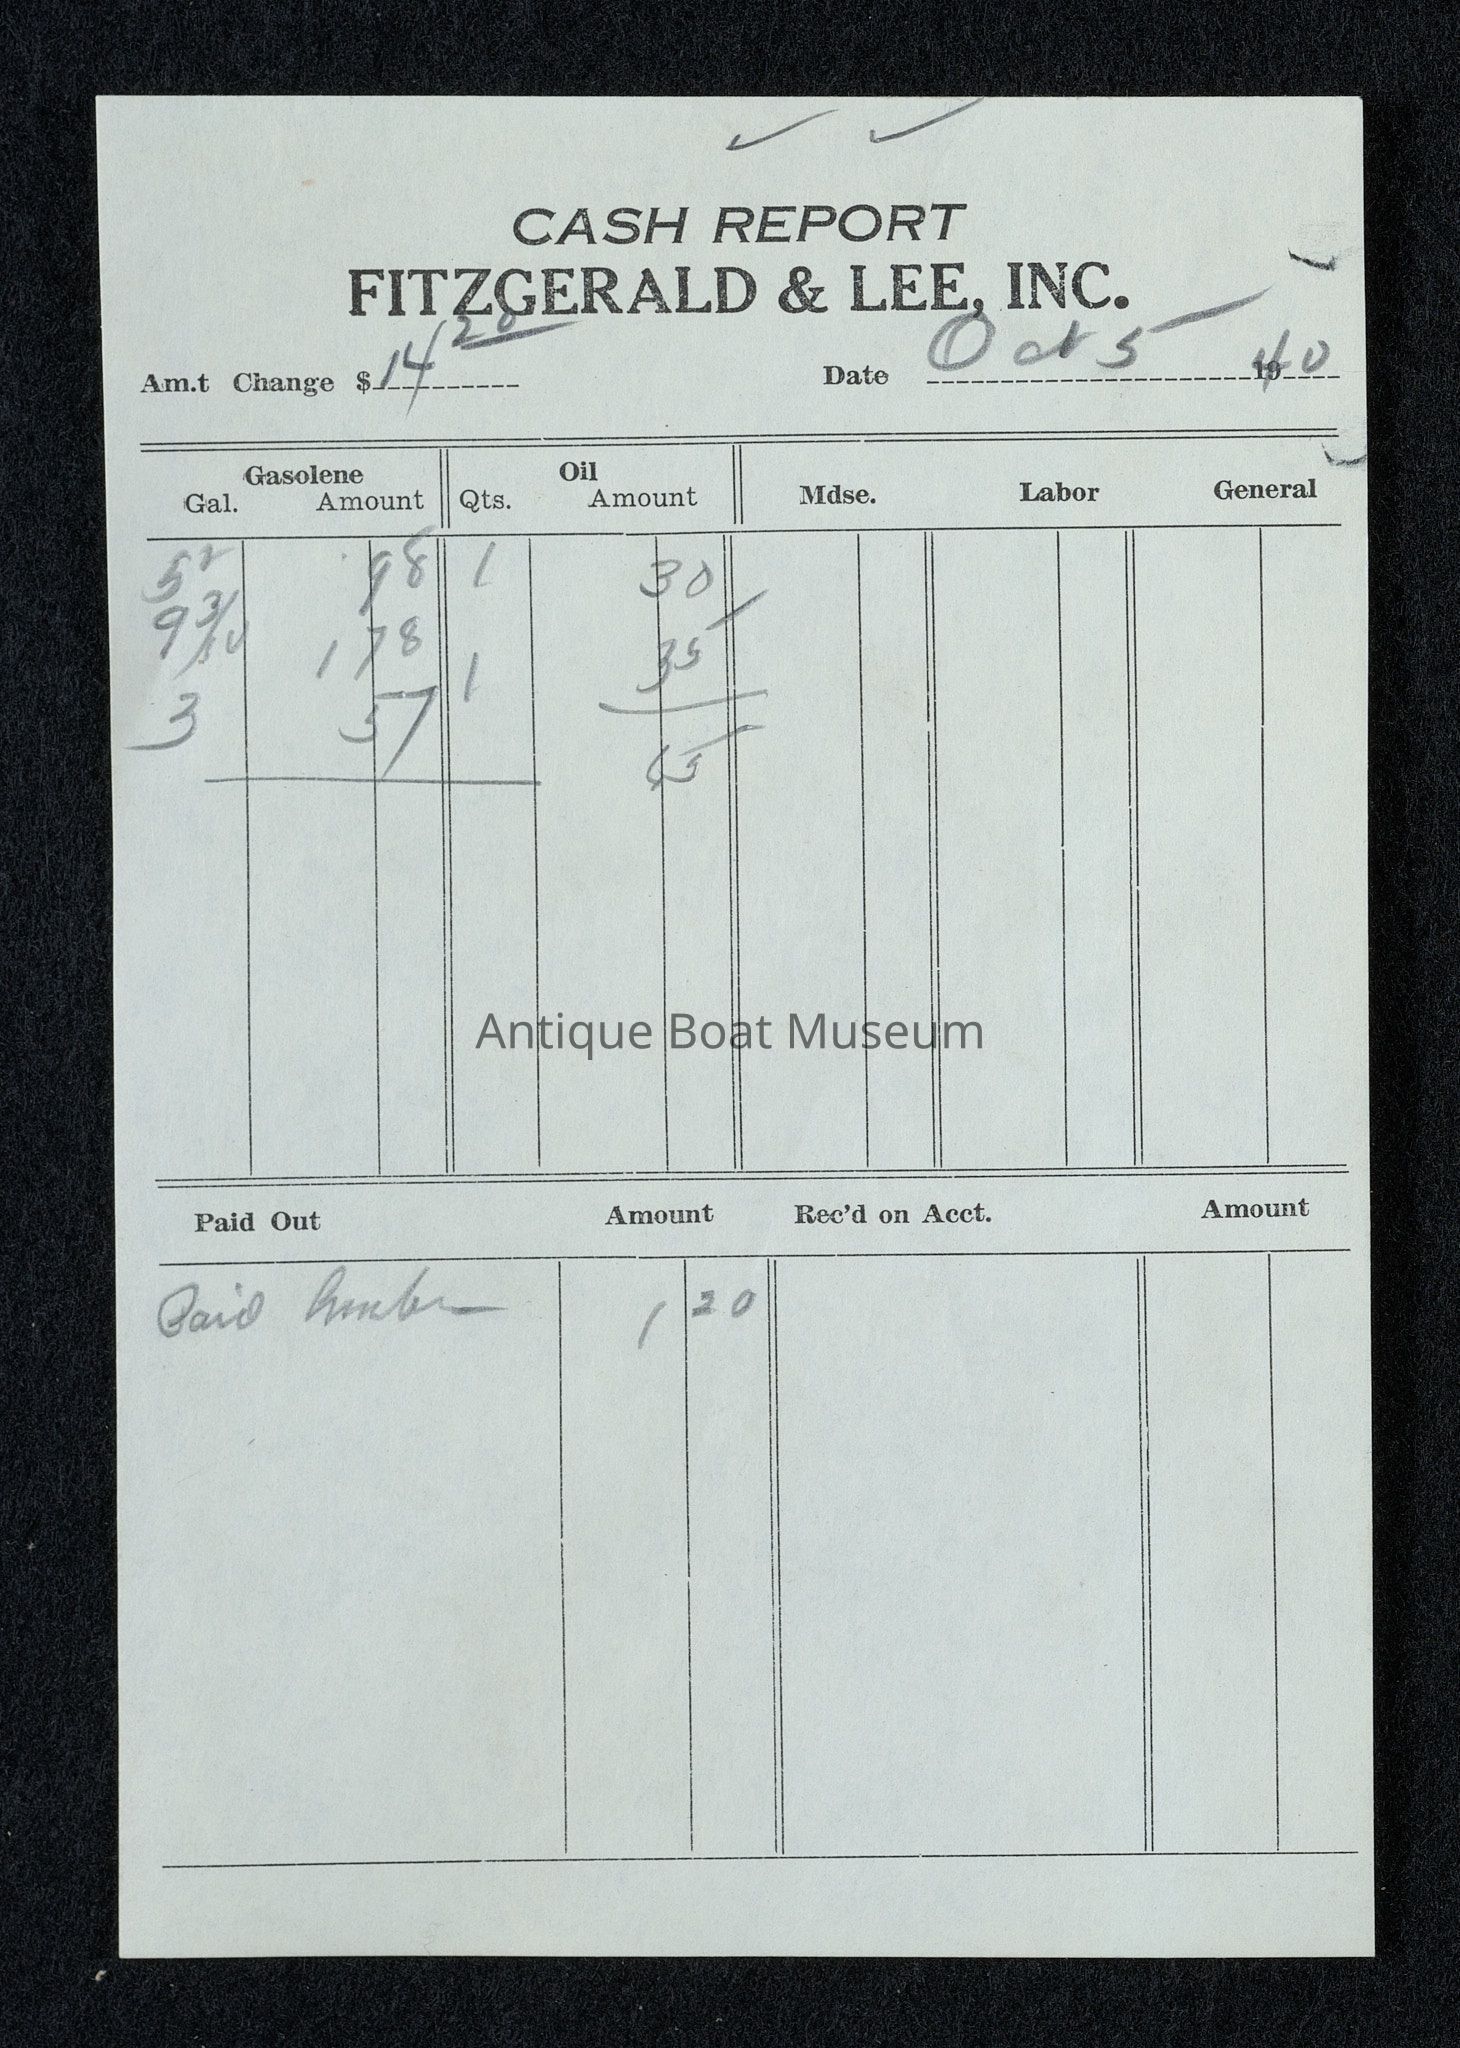 CASH REPORT
FITZGERALD & LEE, INC.
Am.t Change $ 14 20 Date Oct 5 1940
Gasolene Oil
Gal. Amount Qts. Amount Mdse. Labor General
5 2 98 1 30
9 3/10 1 78 1 35
3 57 65
Antique Boat Museum
Paid Out Amount Rec'd on Acct. Amount
Paid 1 20